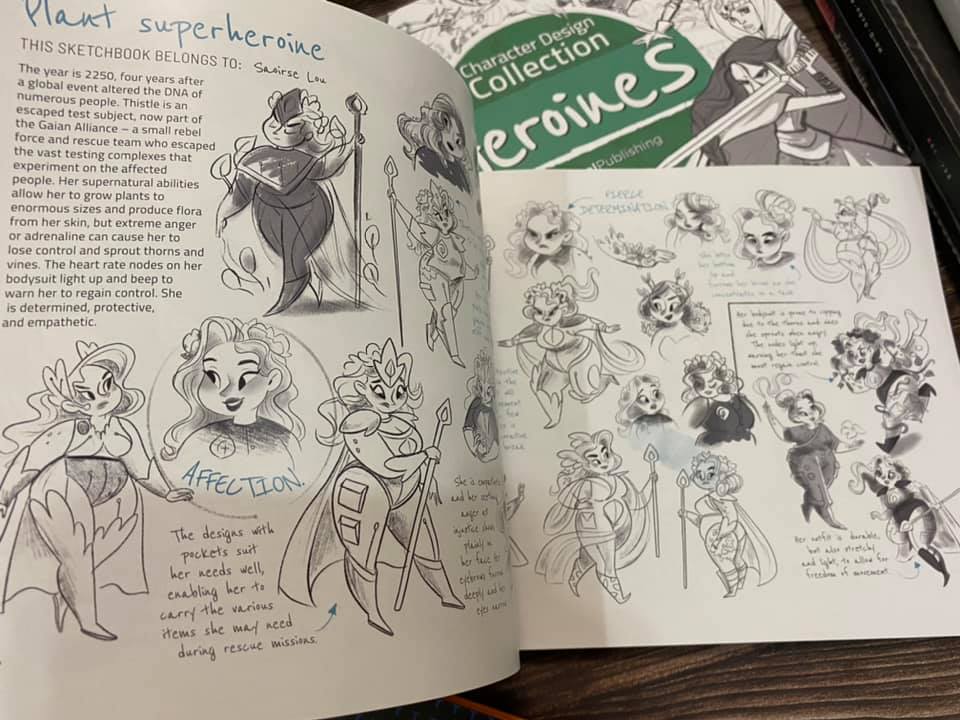 Plant superheroine
THIS SKETCHBOOK BELONGS TO: Saoirse Lou
The year is 2250, four years after
a global event altered the DNA of
numerous people. Thistle is an
escaped test subject, now part of
the Gaian Alliance – a small rebel
force and rescue team who escaped
the vast testing complexes that
experiment on the affected
people. Her supernatural abilities
allow her to grow plants to
enormous sizes and produce flora
from her skin, but extreme anger
or adrenaline can cause her to
lose control and sprout thorns and
vines. The heart rate nodes on her
bodysuit light up and beep to
warn her to regain control. She
is determined, protective,
and empathetic.
AFFECTION.
The designs with
pockets suit
her needs well,
enabling her to
carry the various
items she may need
during rescue missions.
She is
and her
anger at
injustice
plainly in
her face
eyebrows
deeply and
eyes
Character Design
Collection
eroines
Publishing
FIERCE
DETERMINATION
She bites
her bottom
lip and
furrows her brows as she
concentrates on a task
Her bodysuit is prone to ripping
due to the thorns and vines
she sprouts when angry.
The nodes light up,
warning her that she
must regain control.
Her outfit is durable,
but also stretchy
and light, to allow for
freedom of movement.